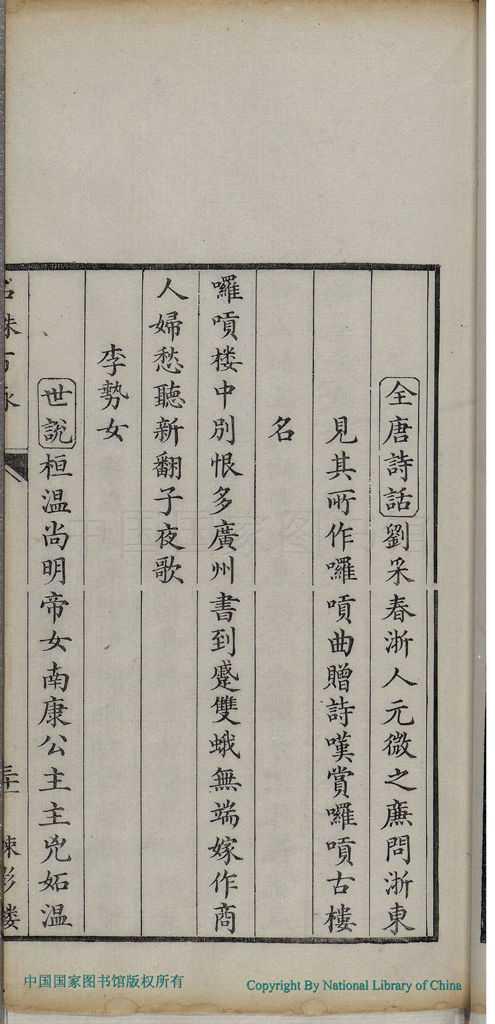 全唐詩話劉采春浙人元微之廉問浙東
見其所作囉嗊曲贈詩嘆賞囉嗊古樓
名
囉嗊楼中別恨多廣州書到蹙雙蛾無端嫁作商
人婦愁聽新翻子夜歌
李勢女
世說桓温尚明帝女南康公主主兇妬温
中国国家图书馆版权所有
Copyright By National Library of China